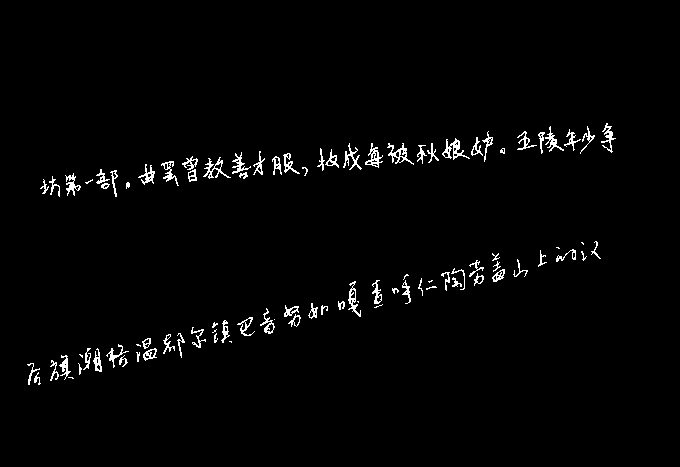 坊第一部。曲罢曾教善才服,妆成每被秋娘妒。五陵年少争
后旗潮格温都尔镇巴音努如嘎查呼仁陶劳盖山上的汉